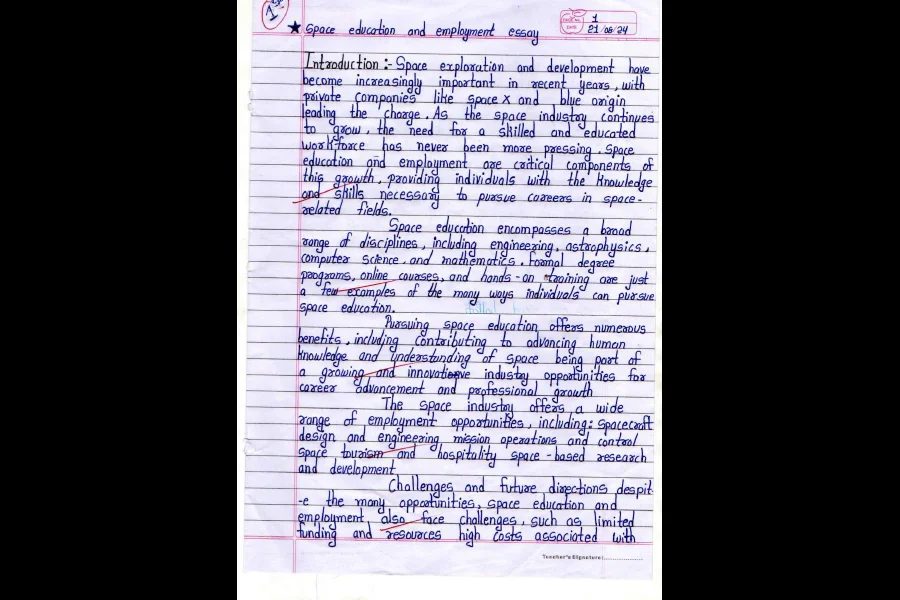 1st
PAGE NO. 1
DATE 21/08/24
★ Space education and employment essay
Introduction :- Space exploration and development have
become increasingly important in recent years, with
private companies like space X and blue origin
leading the charge. As the space industry continues
to grow, the need for a skilled and educated
workforce has never been more pressing. Space
education and employment are critical components of
this growth, providing individuals with the knowledge
and skills necessary to pursue careers in space-
related fields.
Space education encompasses a broad
range of disciplines, including engineering, astrophysics,
computer science, and mathematics. Formal degree
programs, online courses, and hands-on training are just
a few examples of the many ways individuals can pursue
space education.
Pursuing space education offers numerous
benefits, including contributing to advancing human
knowledge and understanding of space being part of
a growing and innovative industry opportunities for
career advancement and professional growth
The space industry offers a wide
range of employment opportunities, including: spacecraft
design and engineering mission operations and control
space tourism and hospitality space-based research
and development
Challenges and future directions despit-
-e the many opportunities, space education and
employment also face challenges, such as limited
funding and resources high costs associated with
Teacher's Signature: